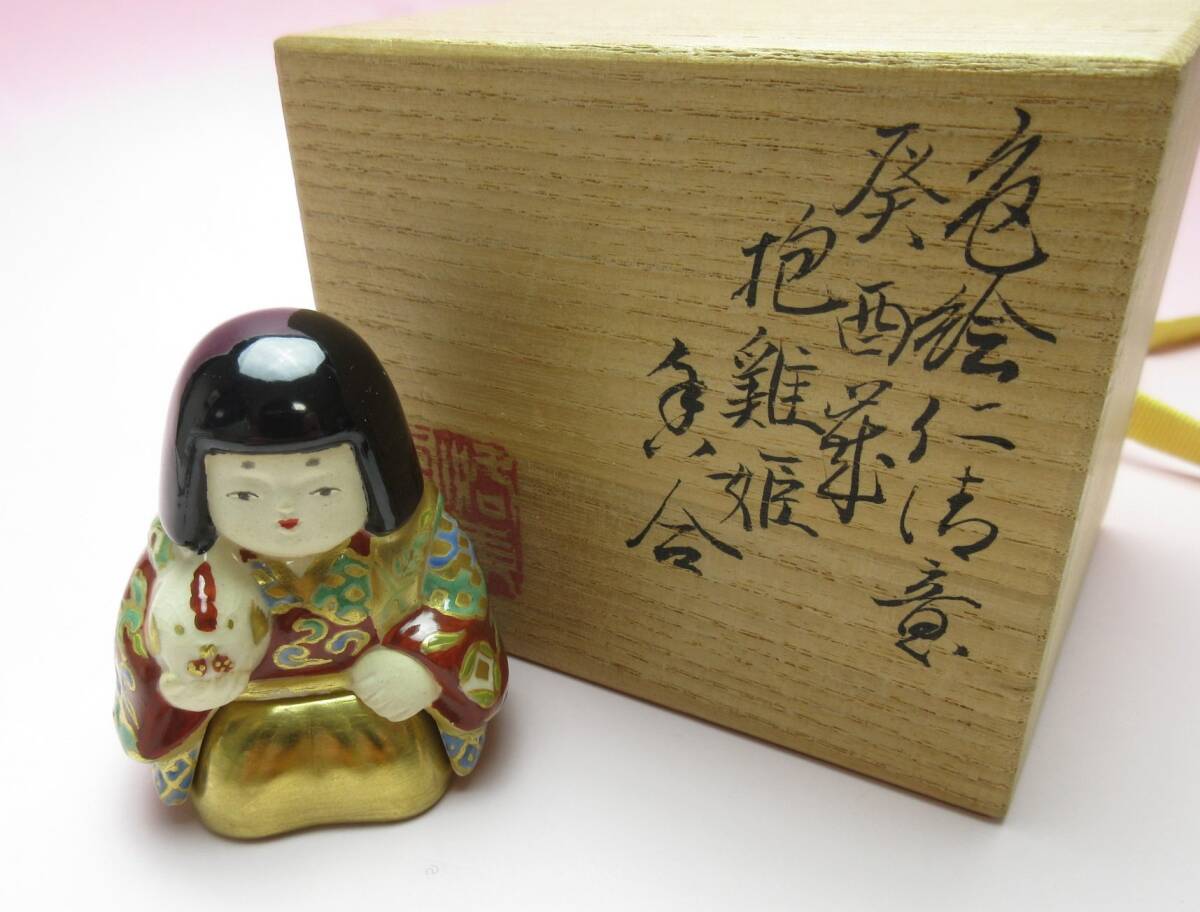 色絵仁清意
癸酉歳
抱雞姫
香合